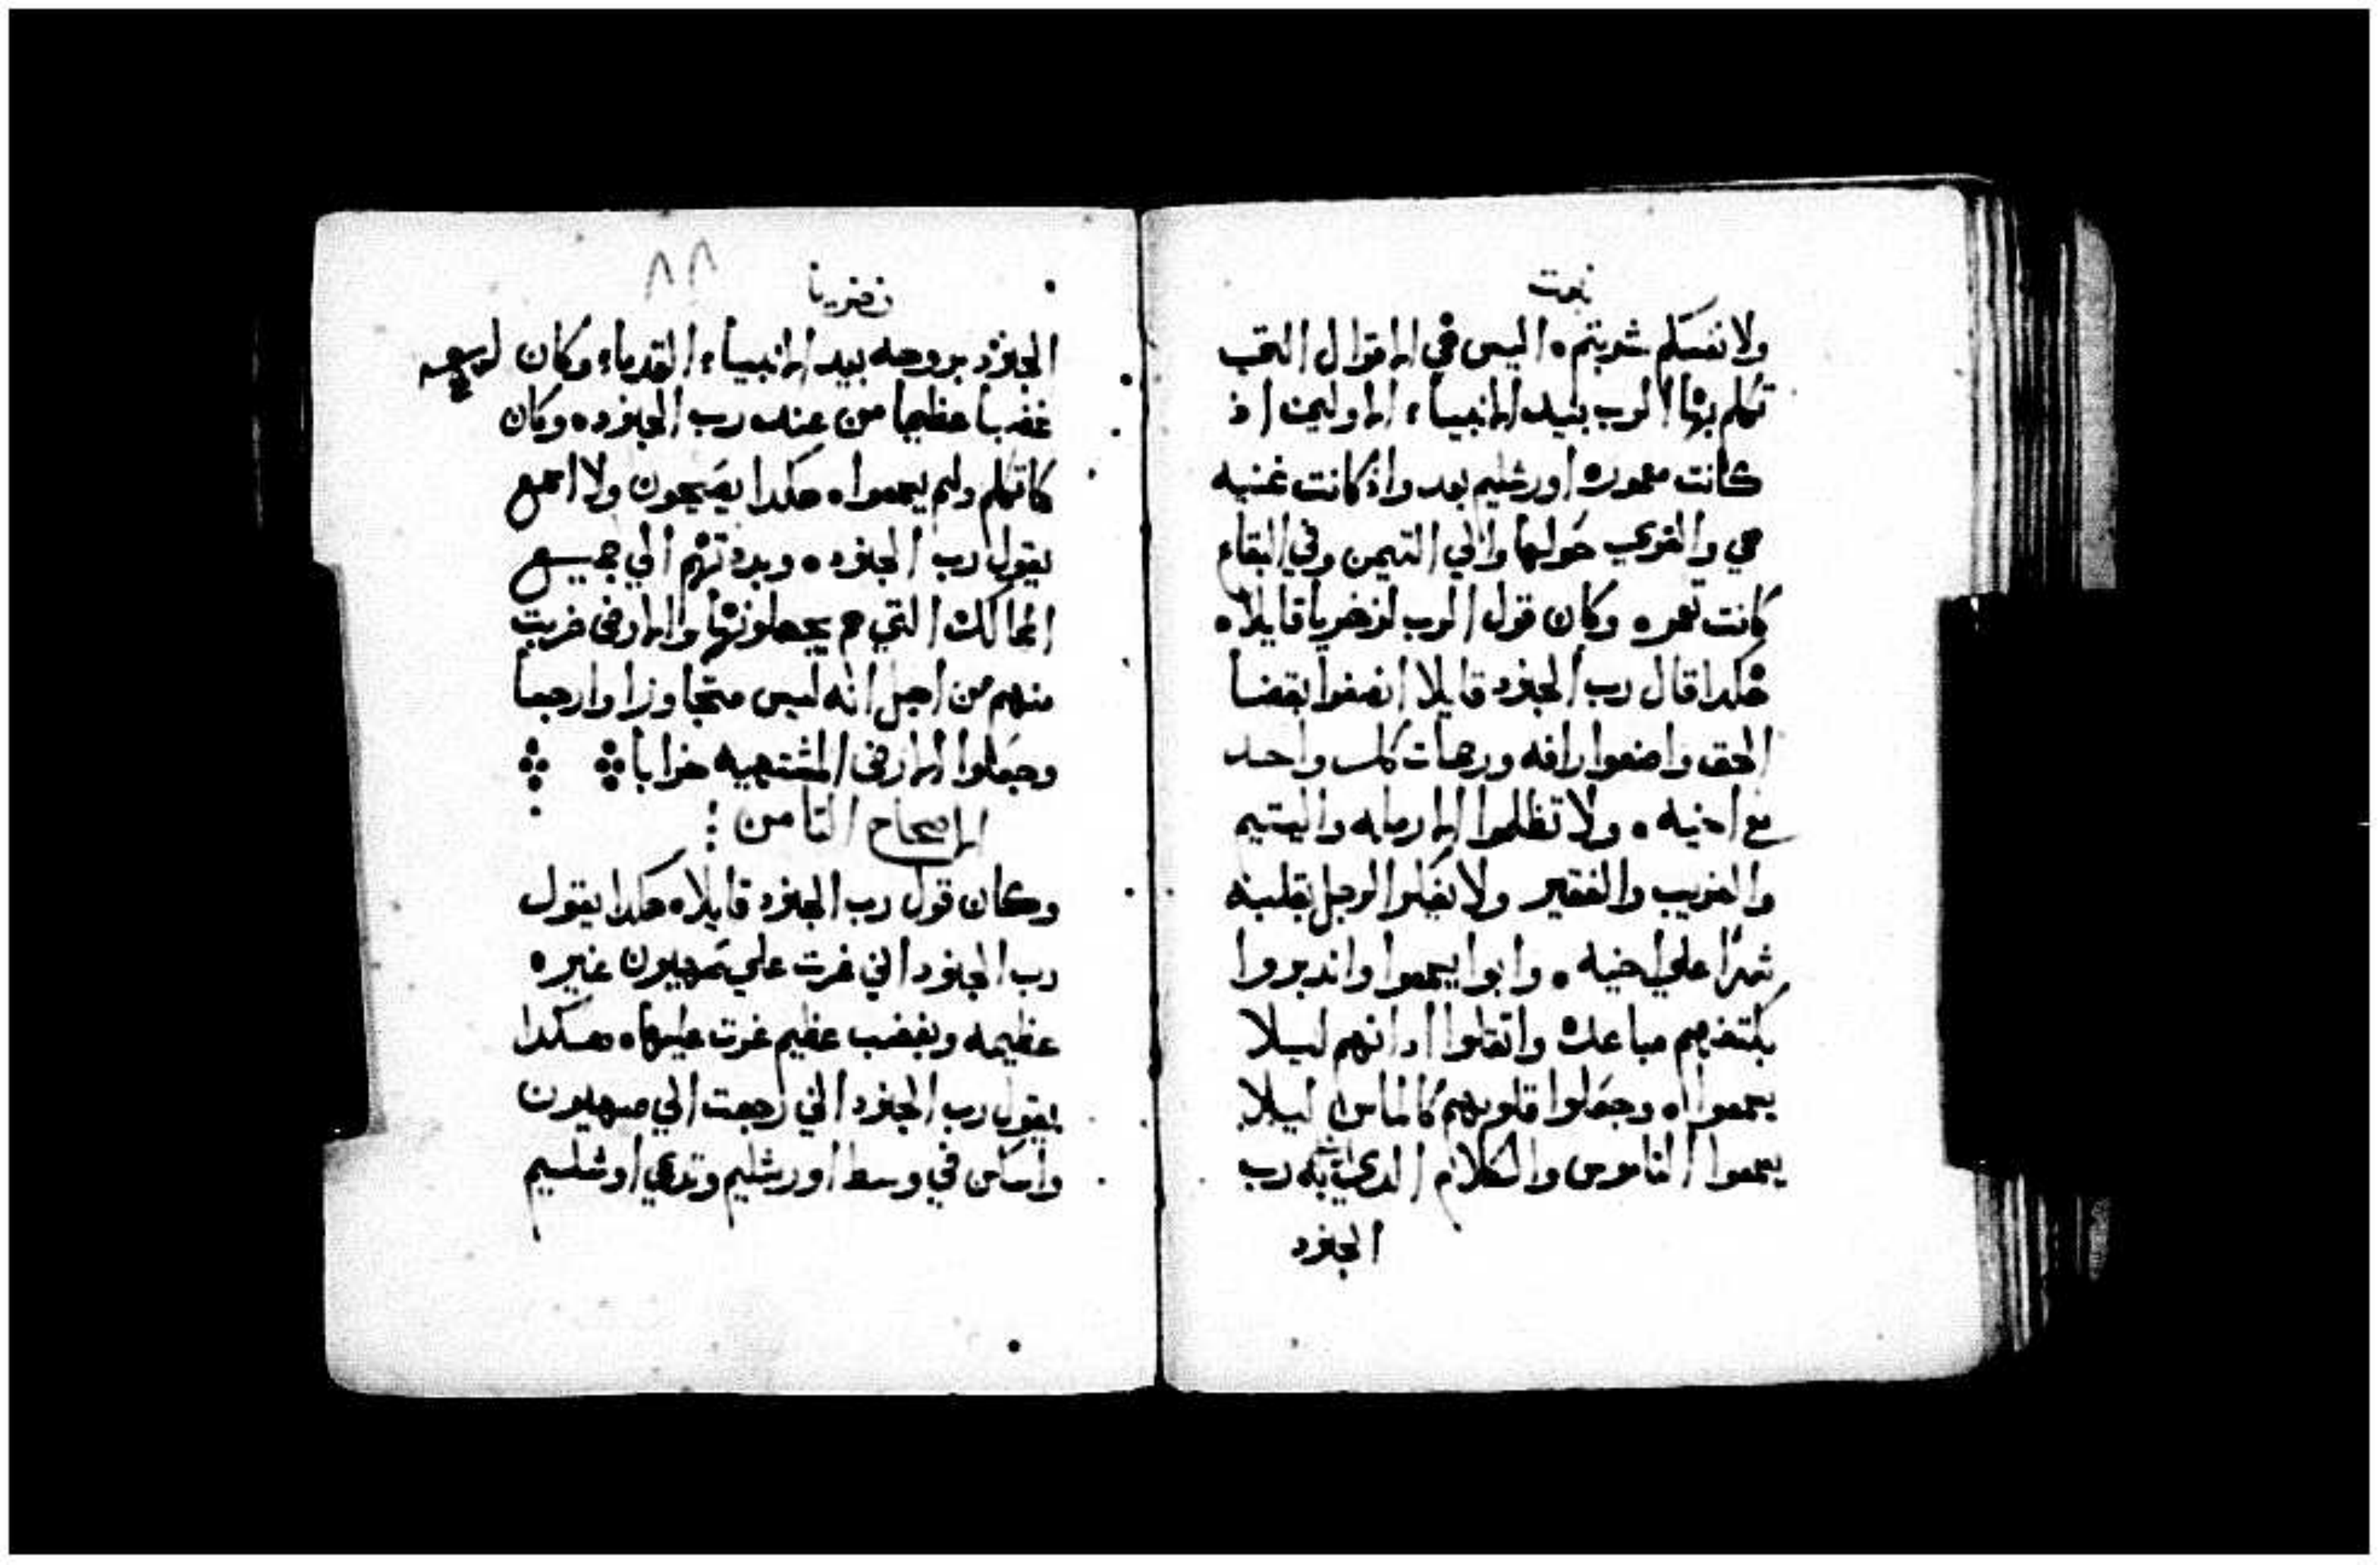 نبوت
ولا نفسكم شربتم ٠ اليس هي الاقوال التى
تكلم بها الرب بيد الانبياء الاولين اذ
كانت معموره اورشليم بعد واذ كانت غنيه
هي والقري حولها والي التيمن وفي البقاع
كانت تعمر ٠ وكان قول الرب لزخريا قايلا ٠
هكدا قال رب الجنود قايلا انصفوا بقضا
الحق واصنعوا رافه ورحمات كل واحد
مع اخيه ٠ ولا تظلموا الارمله واليتيم
والغريب والفقير ولا يفكر الرجل بقلبه
شرا علي اخيه ٠ وابوا يسمعوا واندبروا
بكتفهم مباعك واثقلوا ادانهم ليلا
يسمعوا ٠ وجعلوا قلوبهم كالماس ليلا
يسمعوا الناموس والكلام الدي بعث به رب
الجنود
زخريا
٨٨
الجنود بروحه بيد الانبياء القدماء وكان
غضبا عظيما من عند رب الجنود ٠ وكان
كما تكلم ولم يسمعوا ٠ هكدا يصيحون ولا اسمع
يقول رب الجنود ٠ وبددتهم الي جميع
الممالك التي هم يجهلونها والارض خربت
منهم من اجل انه ليس متجاوزا وارجبا
وجعلوا الارض المشتهيه خرابا
الاصحاح الثامن
وكان قول رب الجنود قايلا ٠ هكدا يقول
رب الجنود اني غرت علي صهيون غيره
عظيمه وبغضب عظيم غرت عليها ٠ هكدا
يقول رب الجنود اني رجعت الي صهيون
واسكن في وسط اورشليم وتدعي اوشليم